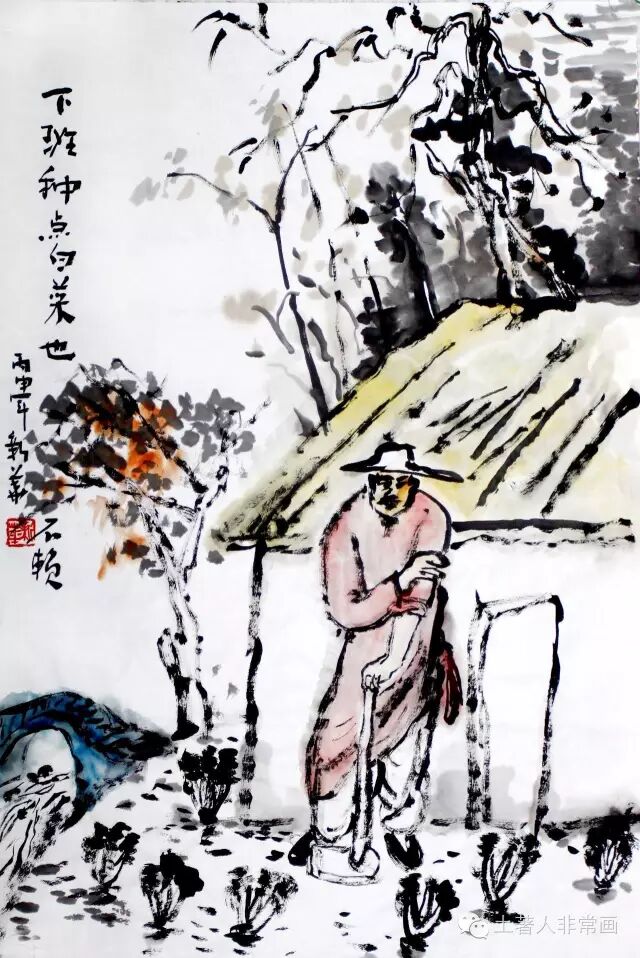 下班种点白菜也
丙申年新华
不赖
土著人非常画